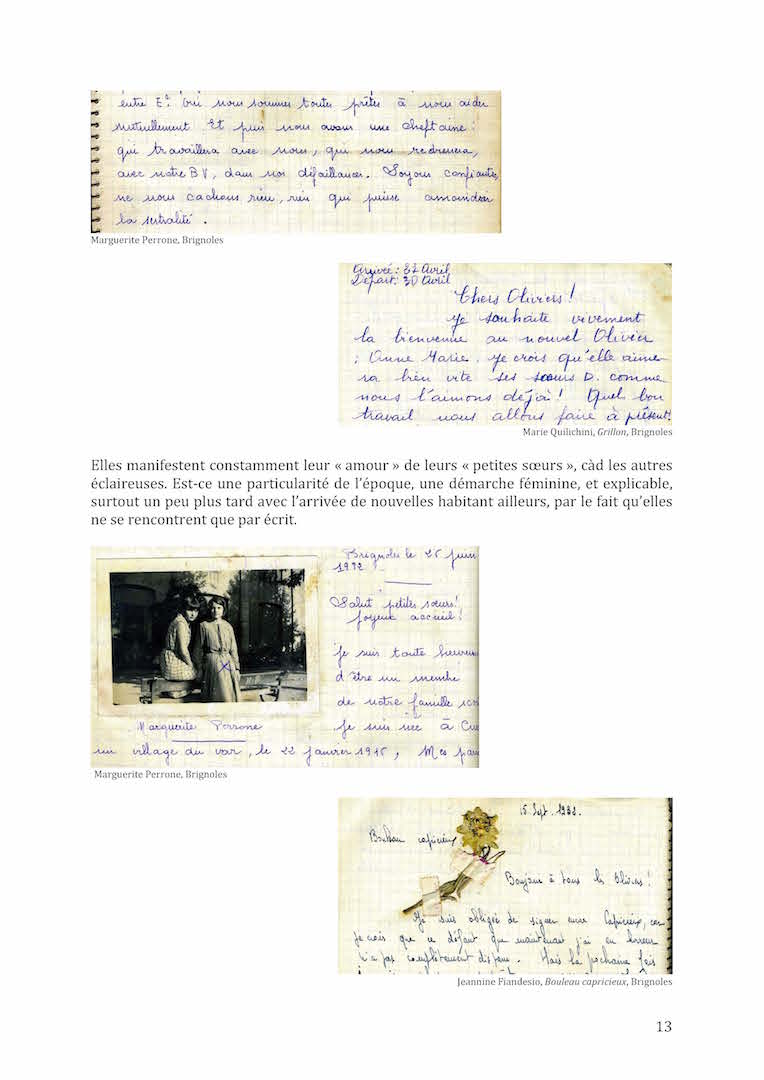 entre E.^s oui nous sommes toutes prêtes à nous aider
mutuellement Et puis nous avons une cheftaine :
qui travaillera avec nous, qui nous redressera,
avec notre BV, dans nos défaillances. Soyons confiantes,
ne nous cachons rien, rien qui puisse amoindrir
la
Marguerite Perrone, Brignoles
Arrivée : 27 Avril
Départ : 30 Avril
Chers Oliviers !
Je souhaite vivement
la bienvenue au nouvel Olivier
: Anne Marie. Je crois qu'elle aime-
ra bien vite ses sœurs D. comme
nous l'aimons déjà ! Quel bon
travail nous allons faire à présent!
Marie Quilichini, Grillon, Brignoles
Elles manifestent constamment leur « amour » de leurs « petites sœurs », càd les autres
éclaireuses. Est-ce une particularité de l'époque, une démarche féminine, et explicable,
surtout un peu plus tard avec l'arrivée de nouvelles habitant ailleurs, par le fait qu'elles
ne se rencontrent que par écrit.
Brignoles le 25 juin
1932
Salut petites sœurs!
Joyeux accueil!
Je suis toute heureus
d'être un membre
de notre famille sco
Marguerite Perrone
Je suis née à Cue
un village du var, le 22 janvier 1915, Mes par
Marguerite Perrone, Brignoles
15 Sept. 1932.
Bouleau capricieux
Bonjour à tous les Oliviers !
Je suis obligée de signer encore Capricieux, car
je crois que ce défaut que maintenant j'ai en horreur
n'a pas complètement disparu. Mais la prochaine fois
Jeannine Fiandesio, Bouleau capricieux, Brignoles
13